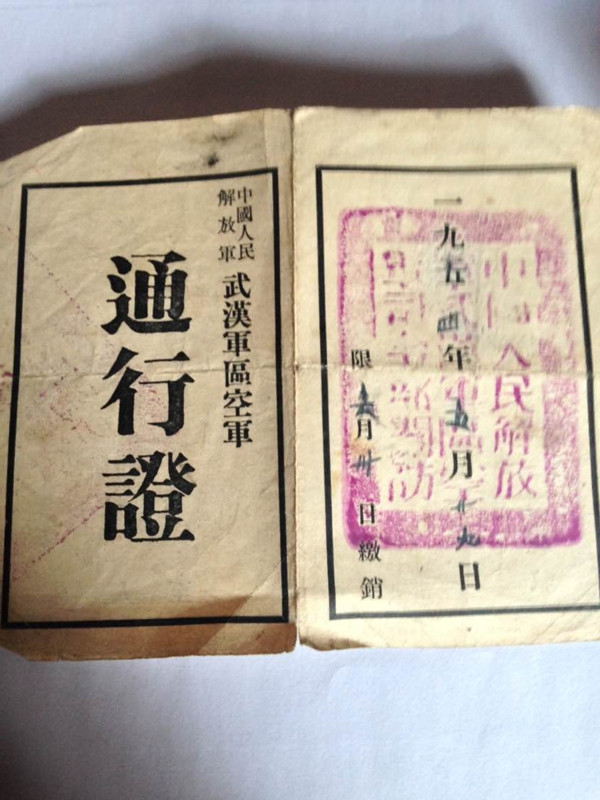 中國人民
解放軍
武漢軍區空軍
通行證
一九五四年五月廿九日
限月卅日繳銷
中國人民解放